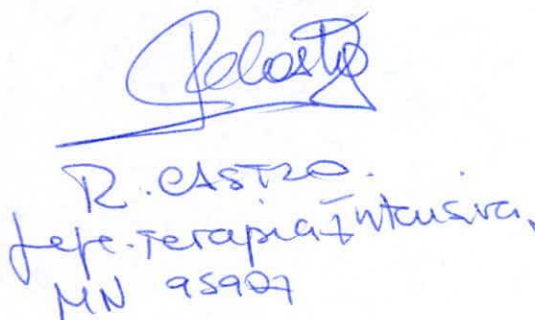 R. CASTRO.
Jefe. Terapia Intensiva.
MN 95907